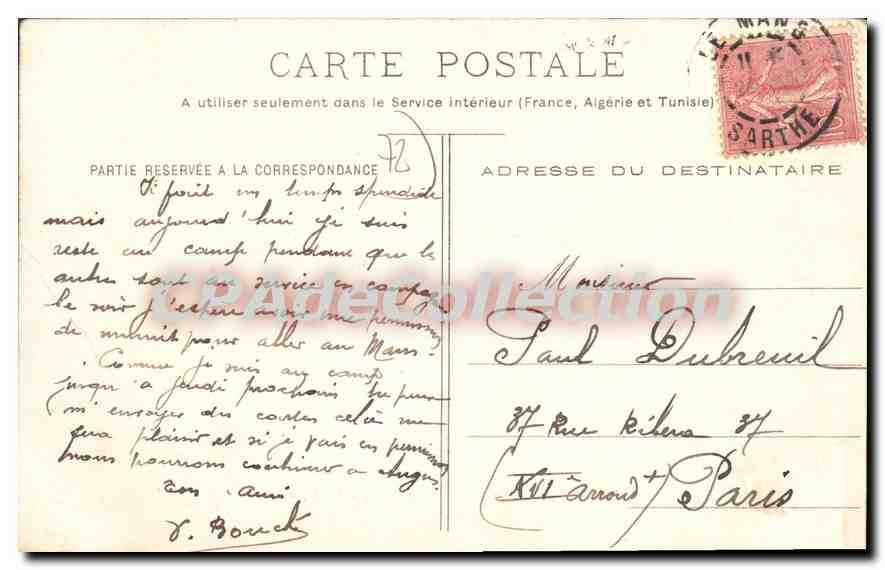 CARTE POSTALE
A utiliser seulement dans le Service intérieur (France, Algérie et Tunisie)
LE MANS
11
SARTHE
10
72
PARTIE RESERVÉE A LA CORRESPONDANCE
Il fait un temps splendide
mais aujourd'hui je suis
resté au camp pendant que les
autres sont au service en campag
le soir j'espère avoir une permission
de minuit pour aller au Mans.
Comme je suis au camp
jusqu'à jeudi prochain tu peux
m'envoyer des cartes cela me
fera plaisir et si je vais en permission
nous pourrons continuer a
Ton ami
V. Bouché
ADRESSE DU DESTINATAIRE
Monsieur
Paul Dubreuil
37 Rue Ribera 37
(XVI e arrond t) Paris
CPAdeCollection.com